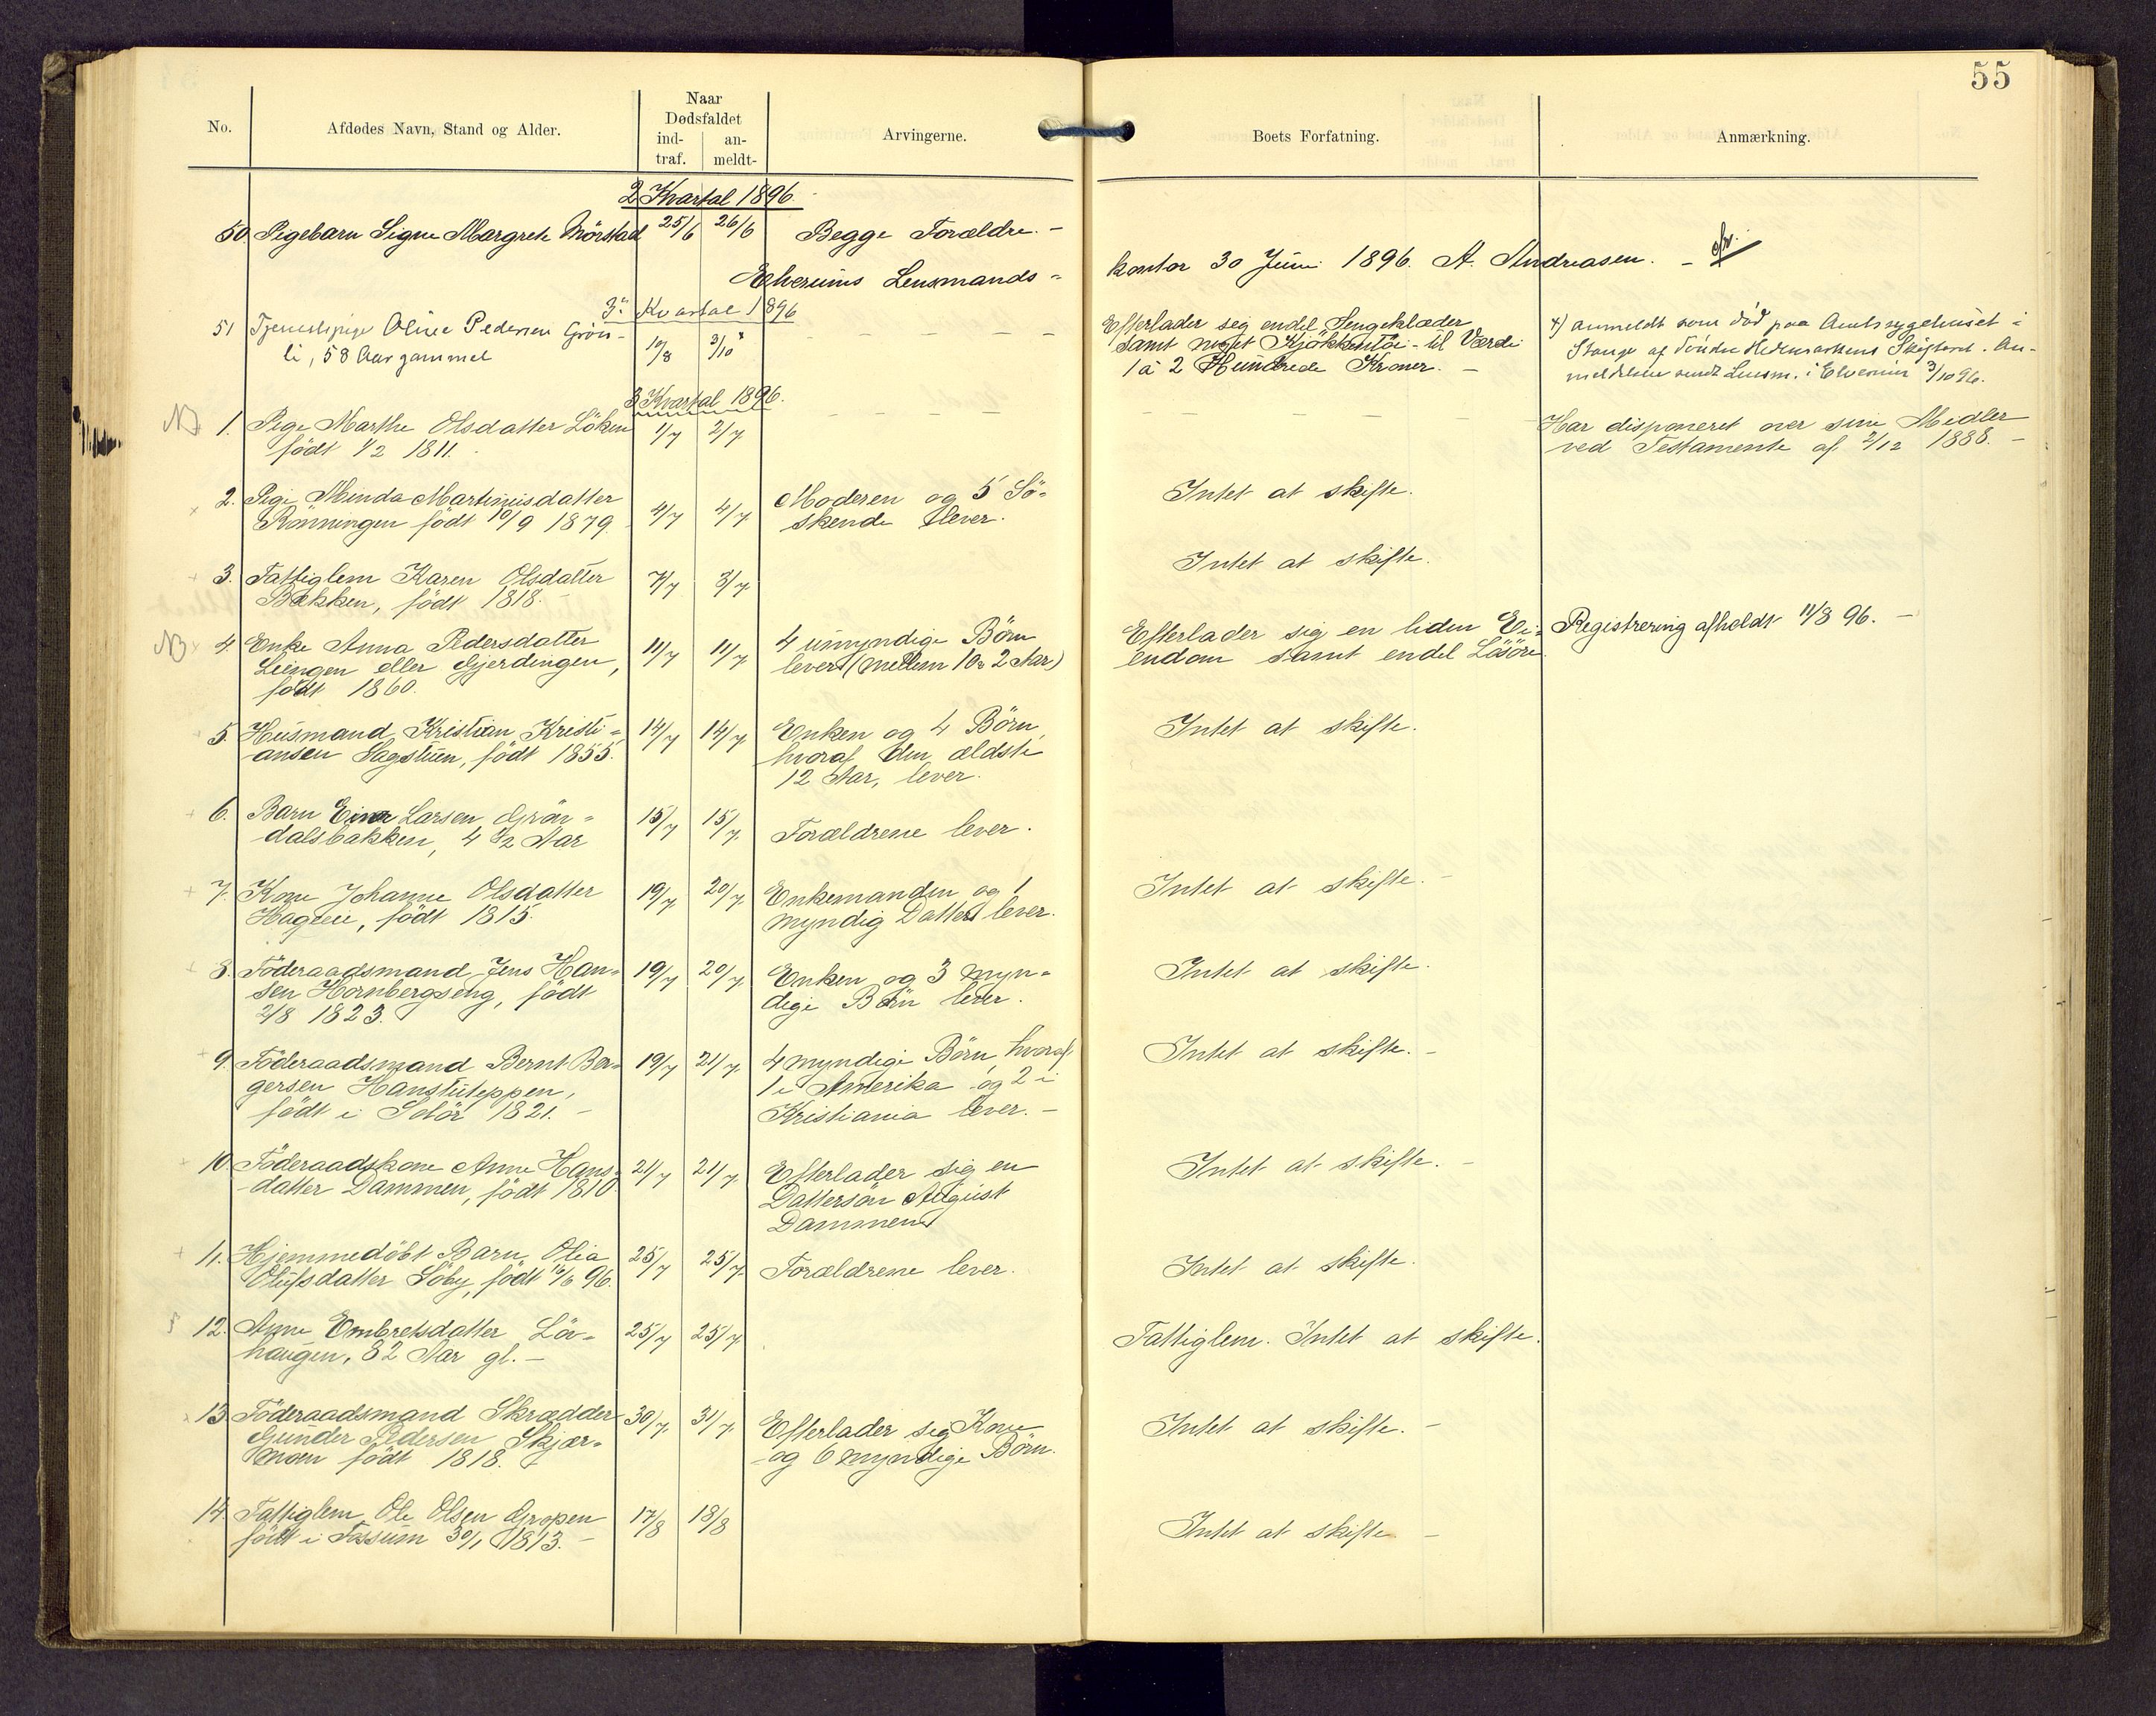 55
No.
Afdødes Navn, Stand og Alder.
Naar
Dødsfaldet
ind-
traf.
an-
meldt-
Arvingerne.
Boets Forfatning.
Anmærkning.
2 Kvartal 1896.
50 Pigebarn Signe Margrete Mörstad 25/6 26/6 Begge Forældre. -
Elverums Lensmands-
kontor 30 Juni 1896. A. Andreasen. -
3. Kvartal 1896
51 Tjenestepige Oline Pedersen Grön-
li, 58 Aar gammel 10/8 3/10
Efterlader seg endel Sengeklæder
samt noget Kjökkentöi - til Værdi
1 à 2 Hundrede Kroner. -
*) anmeldt som död paa Amtssygehuset i
Stange af Söndre Hedemarkens Skifteret. An-
meldelsen sendt Lensm. i Elverum 3/10 96.
3 Kvartal 1896.
NB 1. Pige Marthe Olsdatter Löken 1/7 2/7
födt 1/2 1811.
Har disponeret over sine Midler
ved Testamente af 2/12 1888. -
2. Pige Minda Martinusdatter
Rönningen födt 10/9 1879. 4/7 4/7 Moderen og 5 Sö-
skende lever.
Intet at skifte.
3. Fattiglem Karen Olsdatter
Bækken, födt 1818. - 7/7 3/7
Intet at skifte.
NB 4. Enke Anna Pedersdatter
Leingen eller Gjerdingen,
födt 1860. 11/7 11/7 4 umyndige Börn
lever (mellem 10 & 2 Aar)
Efterlader sig en liden Ei-
endom samt endel Lösöre.
Registrering afholdt 11/8 96. -
5. Husmand Kristian Kristi-
ansen Sagstuen, födt 1855. 14/7 14/7 Enken og 4 Börn,
hvoraf den ældste
12 Aar, lever.
Intet at skifte.
6. Barn Einar Larsen Grön-
dalsbakken, 4 1/2 Aar 15/7 15/7 Forældrene lever.
7. Kone Johanne Olsdatter
Hageen, födt 1815. 19/7 20/7 Enkemanden og 1
myndig Datter lever.
Intet at skifte. -
8. Föderaadsmand Jens Han-
sen Hornbergseng, födt
2/8 1823. 19/7 20/7 Enken og 3 myn-
dige Börn lever.
Intet at skifte.
9. Föderaadsmand Bernt Ber-
gersen Hanstuteppen,
födt i Solör 1821. - 19/7 21/7 4 myndige Börn, hvoraf
1 i Amerika og 2 i
Kristiania lever. -
Intet at skifte. -
10. Föderaadskone Anne Hans-
datter Dammen, födt 1810. 21/7 21/7 Efterlader sig en
Dattersön August
Dammen
Intet at skifte. -
11. Hjemmedöbt Barn Olia
Olufsdatter Söby, födt 16/6 96. 25/7 25/7 Forældrene lever.
Intet at skifte.
12. Anne Embretsdatter Löv-
haugen, 82 Aar gl. - 25/7 25/7
Fattiglem. Intet at skifte.
13. Föderaadsmand Skrædder
Gunder Pedersen Skjær-
moen födt 1818. 30/7 31/7 Efterlader sig Kone
og 6 myndige Börn.
Intet at skifte. -
14. Fattiglem Ole Olsen Gropen
födt i Fossum 30/1 1813. - 17/8 18/8
Intet at skifte -